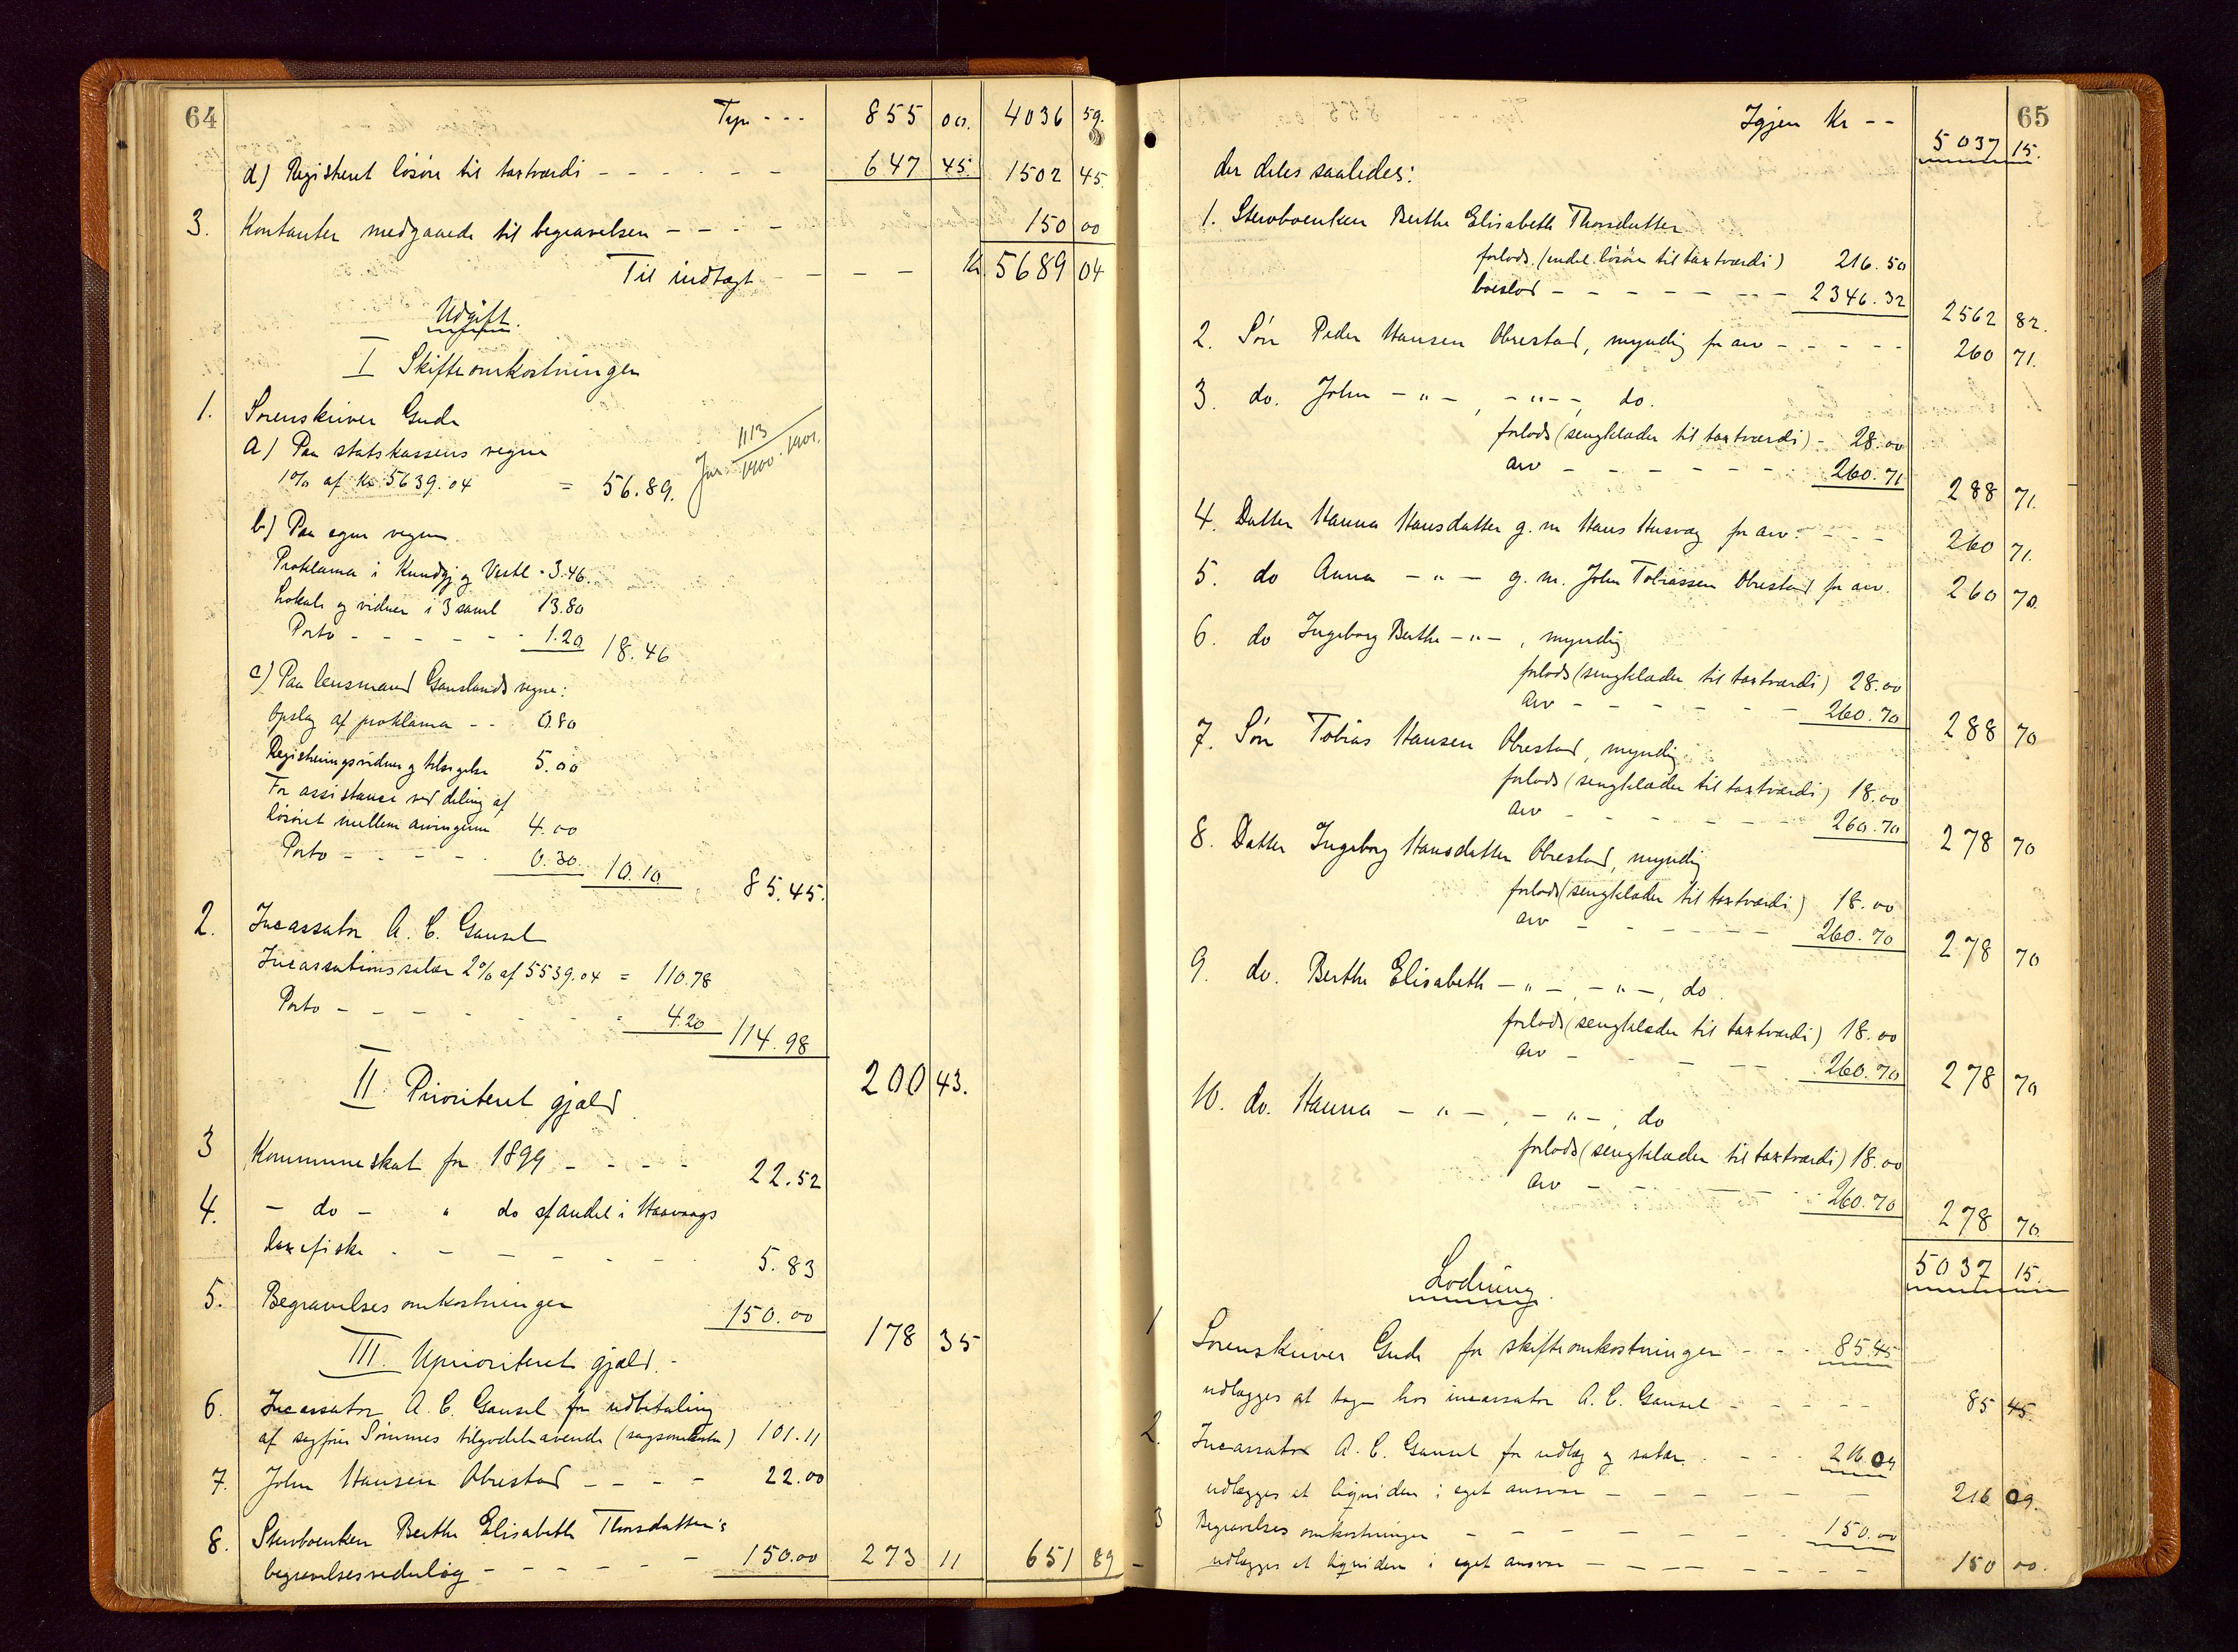 64
Tr. - - - 855 00. 4036 59.
d) Registreret løsøre til taxtværdi - - - - - - 647 45. 1502 45.
3. Kontanter medgaaede til begravelsen - - - - 150 00
Til indtægt - - - Kr. 5689 04
Udgift.
I Skifteomkostninger
1. Sorenskriver Gude
a) Paa statskassens vegne
1% af Kr 5639.04 = 56.89. Jur 1113/1900.1901.
b) Paa egne vegne
Proklama i Kundgj og Vestl - 3.46.
Lokale og vidner i 3 saml 13.80
Porto - - - - - - 1.20 18.46
c) Paa lensmand Gauslands vegne:
Opslag af proklama - - 0.80
Registreringsvidner og tilsigelse 5.00
For assistance ved deling af
løsøret mellem arvingerne 4.00
Porto - - - - 0.30. 10.10 85.45.
2. Incassator A. C. Gausel
Incassationssalær 2% af 5539.04 = 110.78
Porto - - - - - - 4.20 114.98
200 43.
II Prioriteret gjæld
3 Kommuneskat for 1899 - - - - 22.52
4. - do - " do af andel i Haavaags
laxefiske - - - - - - 5.83
5. Begravelsesomkostninger 150.00
178 35
III. Uprioriteret gjæld -
6. Incassator A. C. Gausel for udbetaling
af sagfør Sømmes tilgodehavende (sagsomkostn) 101.11
7. John Hansen Obrestad - - - - 22.00
8. Stervboenken Berthe Elisabeth Thorsdatter's
begravelsesvederlag - - - - - 150.00 273 11 651 89
65
Igjen Kr - - 5037 15.
der deles saaledes:
1. Stervboenken Berthe Elisabeth Thorsdatter
forlods (endel løsøre til taxtværdi) 216.50
boeslod - - - - - - - - 2346.32
2562 82.
2. Søn Peder Hansen Obrestad, myndig for arv - - - - - 260 71.
3. do. John - " - , - " - -, do.
forlods (sengklæder til taxtværdi) - 28.00
arv - - - - - - - 260.71
288 71.
4. Datter Hanna Hansdatter g. m Hans Husvæg for arv - - - 260 71.
5. do Anna - " - g. m. John Tobiassen Obrestad for arv. 260 70.
6. do Ingeborg Berthe - " - , myndig
forlods (sengklæder til taxtværdi) 28.00
Arv - - - - - - 260.70
288 70
7. Søn Tobias Hansen Obrestad, myndig
forlods (sengklæder til taxtværdi) 18.00
arv - - - - - - 260.70
278 70
8. Datter Ingeborg Hansdatter Obrestad, myndig
forlods (sengklæder til taxtværdi) 18.00
arv - - - - - - 260.70
278 70
9. do. Berthe Elisabeth - " - , - " - , do.
forlods (sengklæder til taxtværdi) 18.00
arv - - - - - 260.70
278 70
10. do. Hanna - " - , - " - , do
forlods (sengklæder til taxtværdi) 18.00
Arv - - - - - 260.70
278 70
5037 15.
Lodning.
1 Sorenskriver Gude for skifteomkostninger - - - 85.45
udlægges at tage hos incassator A. C. Gausel - - - - - 85 45.
2. Incassator A. C. Gausel for udlæg og salær. - - - 216.09
udlægges at liqvidere i eget ansvar - - - - - - 216 09.
3 Begravelsesomkostninger - - - - - - - 150.00
udlægges at liqvidere i eget ansvar - - - - - - 150 00.